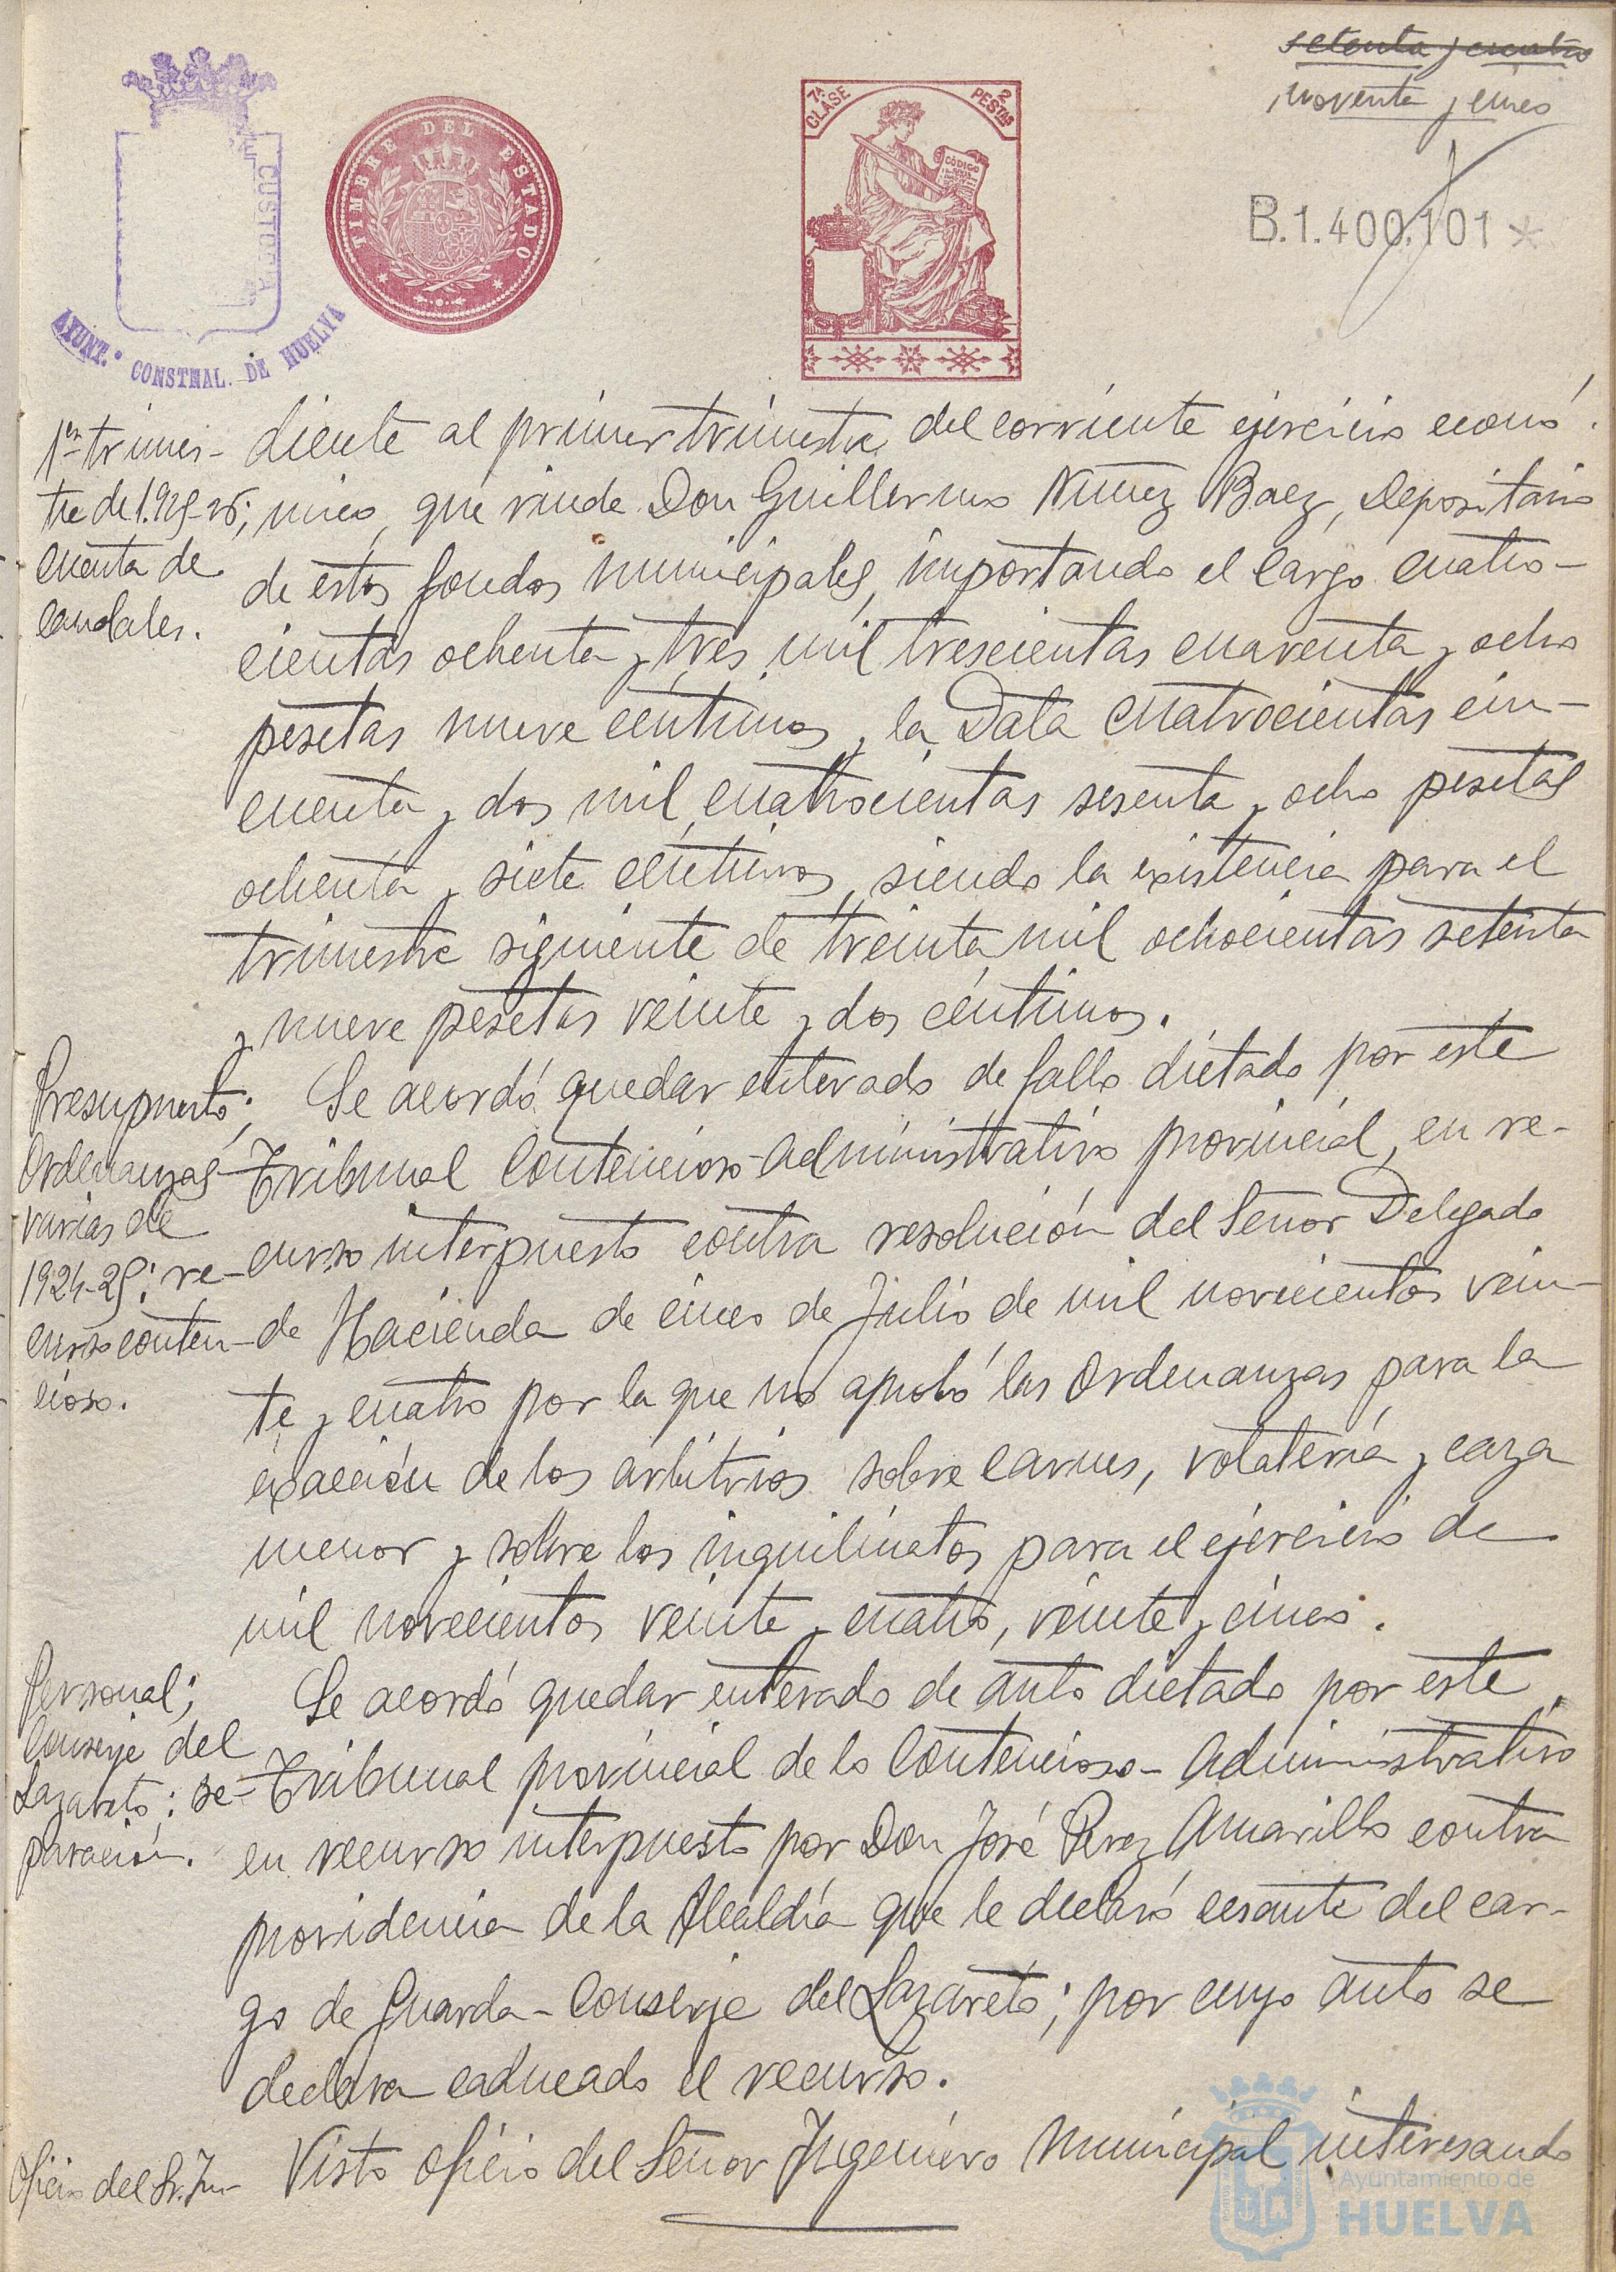 setenta y cuatro
noventa y cinco
CUSTODIA
AYUNT.º CONSTNAL. DE HUELVA
TIMBRE DEL ESTADO
7ª CLASE
2 PESTAS
CÓDIGO
B.1.400.101*
1er trimes-
tre de 1.925-26;
cuenta de
caudales.
diente al primer trimestre del corriente ejercicio econó-
mico, que rinde Don Guillermo Nuñez Baez, Depositario
de estos fondos municipales, importando el cargo cuatro-
cientas ochenta y tres mil trescientas cuarenta y ocho
pesetas nueve céntimos y la Data cuatrocientas cin-
cuenta y dos mil cuatrocientas sesenta y ocho pesetas
ochenta y siete céntimos, siendo la existencia para el
trimestre siguiente de treinta mil ochocientas setenta
y nueve pesetas veinte y dos céntimos.
Presupuesto;
Ordenanzas
varias de
1924-25: re-
curso conten-
cioso.
Se acordó quedar enterado de fallo dictado por este
Tribunal Contencioso-administrativo provincial, en re-
curso interpuesto contra resolución del Señor Delegado
de Hacienda de cinco de Julio de mil novecientos vein-
te y cuatro por la que no aprobó las Ordenanzas para la
exacción de los arbitrios sobre carnes, volatería y caza
menor y sobre los inquilinatos para el ejercicio de
mil novecientos veinte y cuatro, veinte y cinco.
Personal;
Conserje del
Lazareto; se-
paración.
Se acordó quedar enterado de auto dictado por este
Tribunal provincial de lo Contencioso-Administrativo
en recurso interpuesto por Don José Perez Amarillo contra
providencia de la Alcaldía que le declaró cesante del car-
go de Guarda-Conserje del Lazareto; por cuyo auto se
declara caducado el recurso.
Oficio del Sr. In-
Visto oficio del Señor Ingeniero Municipal interesando
Ayuntamiento de
HUELVA